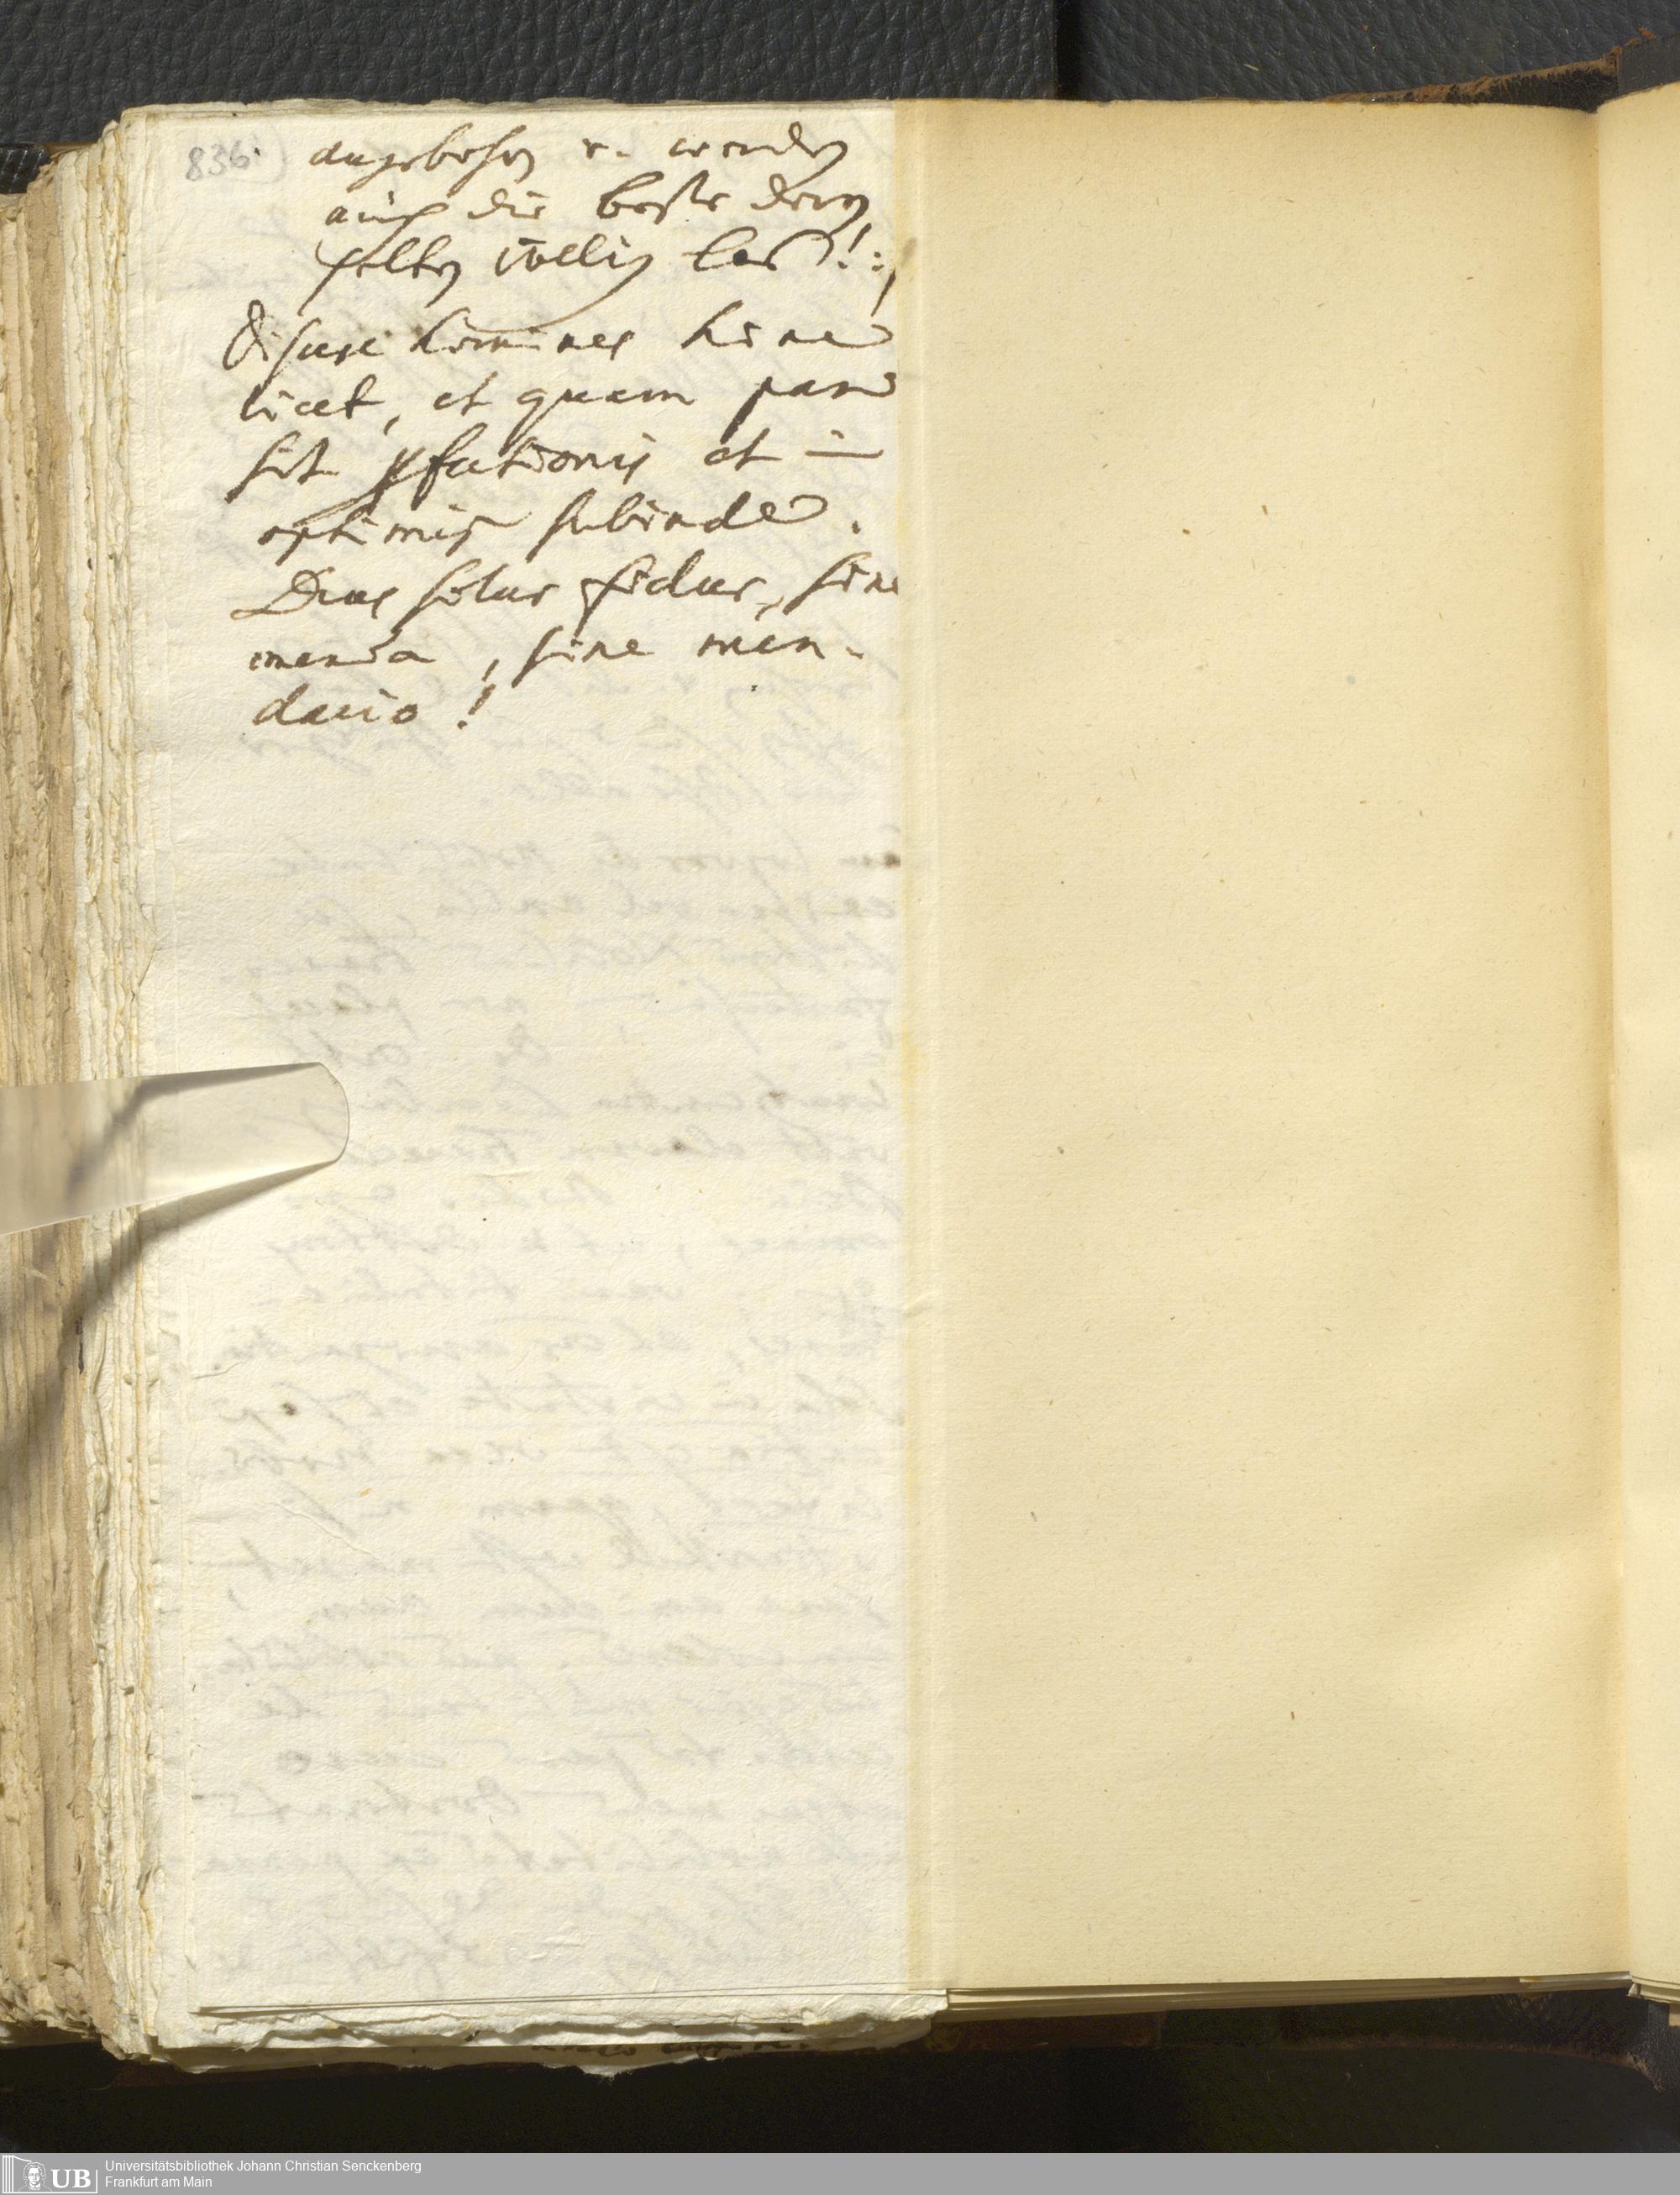 836.
angebohrn u. werden
auch die beste dero
selben völlig los!:/
Discere homines hinc
licet, et quam parum
sit et in
optimis subinde.
Deus solus fidus, sine
menda, sine men-
dacio!
UB
Universitätsbibliothek Johann Christian Senckenberg
Frankfurt am Main